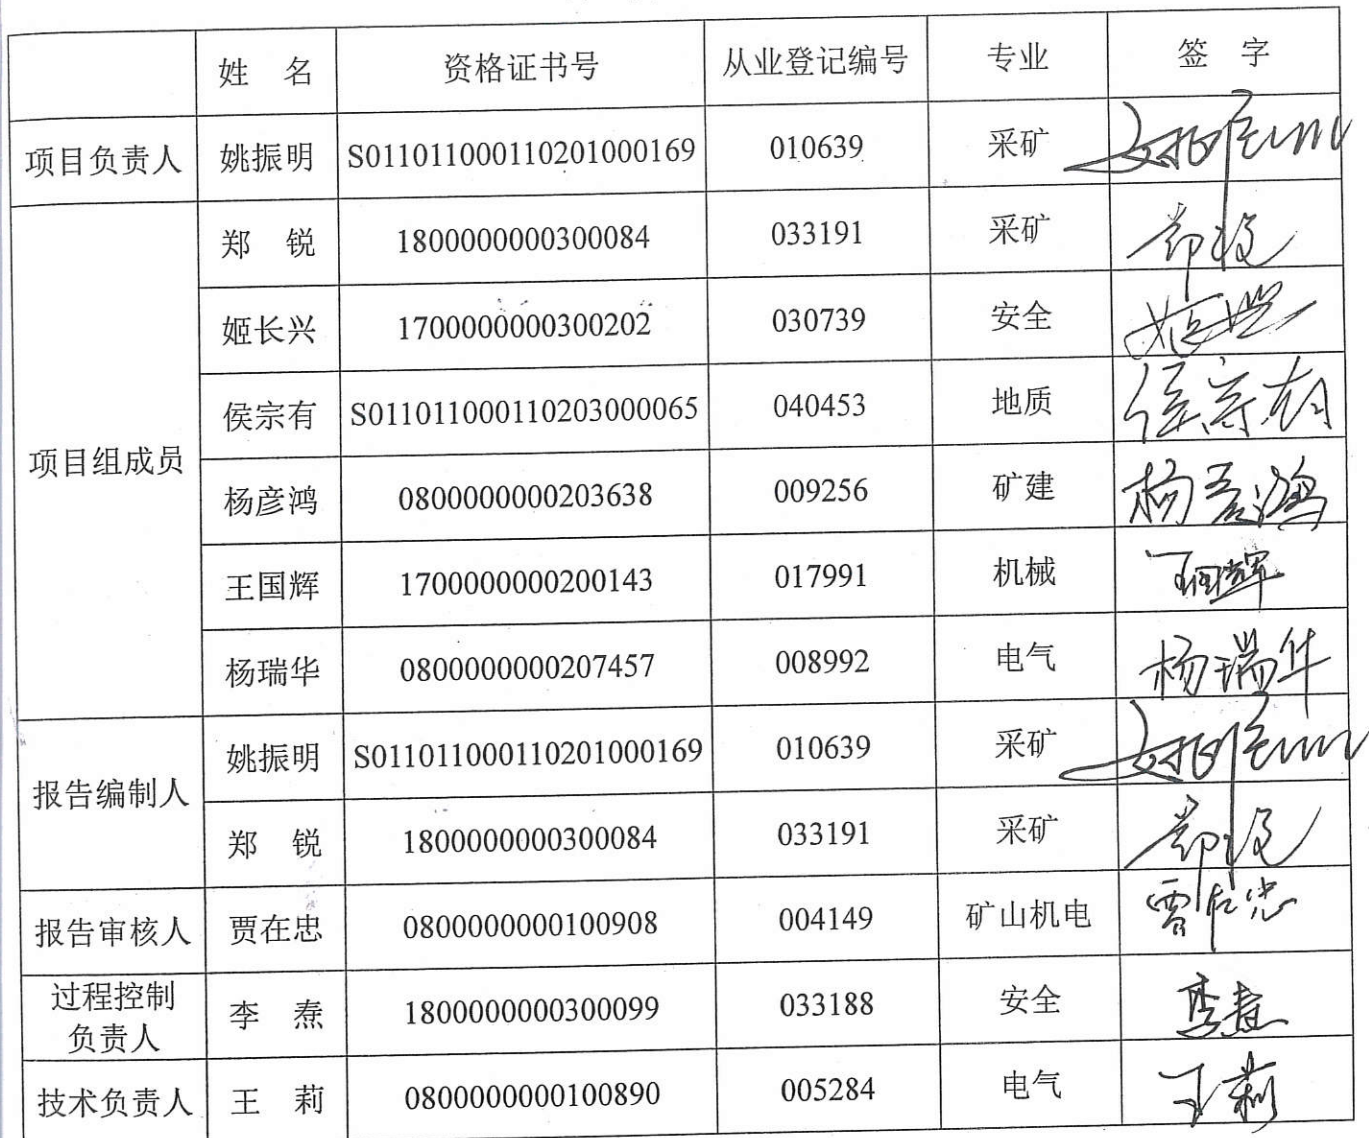 姓 名 资格证书号 从业登记编号 专业 签 字
项目负责人 姚振明 S011011000110201000169 010639 采矿 姚振明
项目组成员
郑 锐 1800000000300084 033191 采矿 郑锐
姬长兴 1700000000300202 030739 安全
侯宗有 S011011000110203000065 040453 地质 侯宗有
杨彦鸿 0800000000203638 009256 矿建 杨彦鸿
王国辉 1700000000200143 017991 机械 王国辉
杨瑞华 0800000000207457 008992 电气 杨瑞华
报告编制人
姚振明 S011011000110201000169 010639 采矿 姚振明
郑 锐 1800000000300084 033191 采矿 郑锐
报告审核人 贾在忠 0800000000100908 004149 矿山机电 贾在忠
过程控制
负责人 李 焘 1800000000300099 033188 安全
技术负责人 王 莉 0800000000100890 005284 电气 王莉